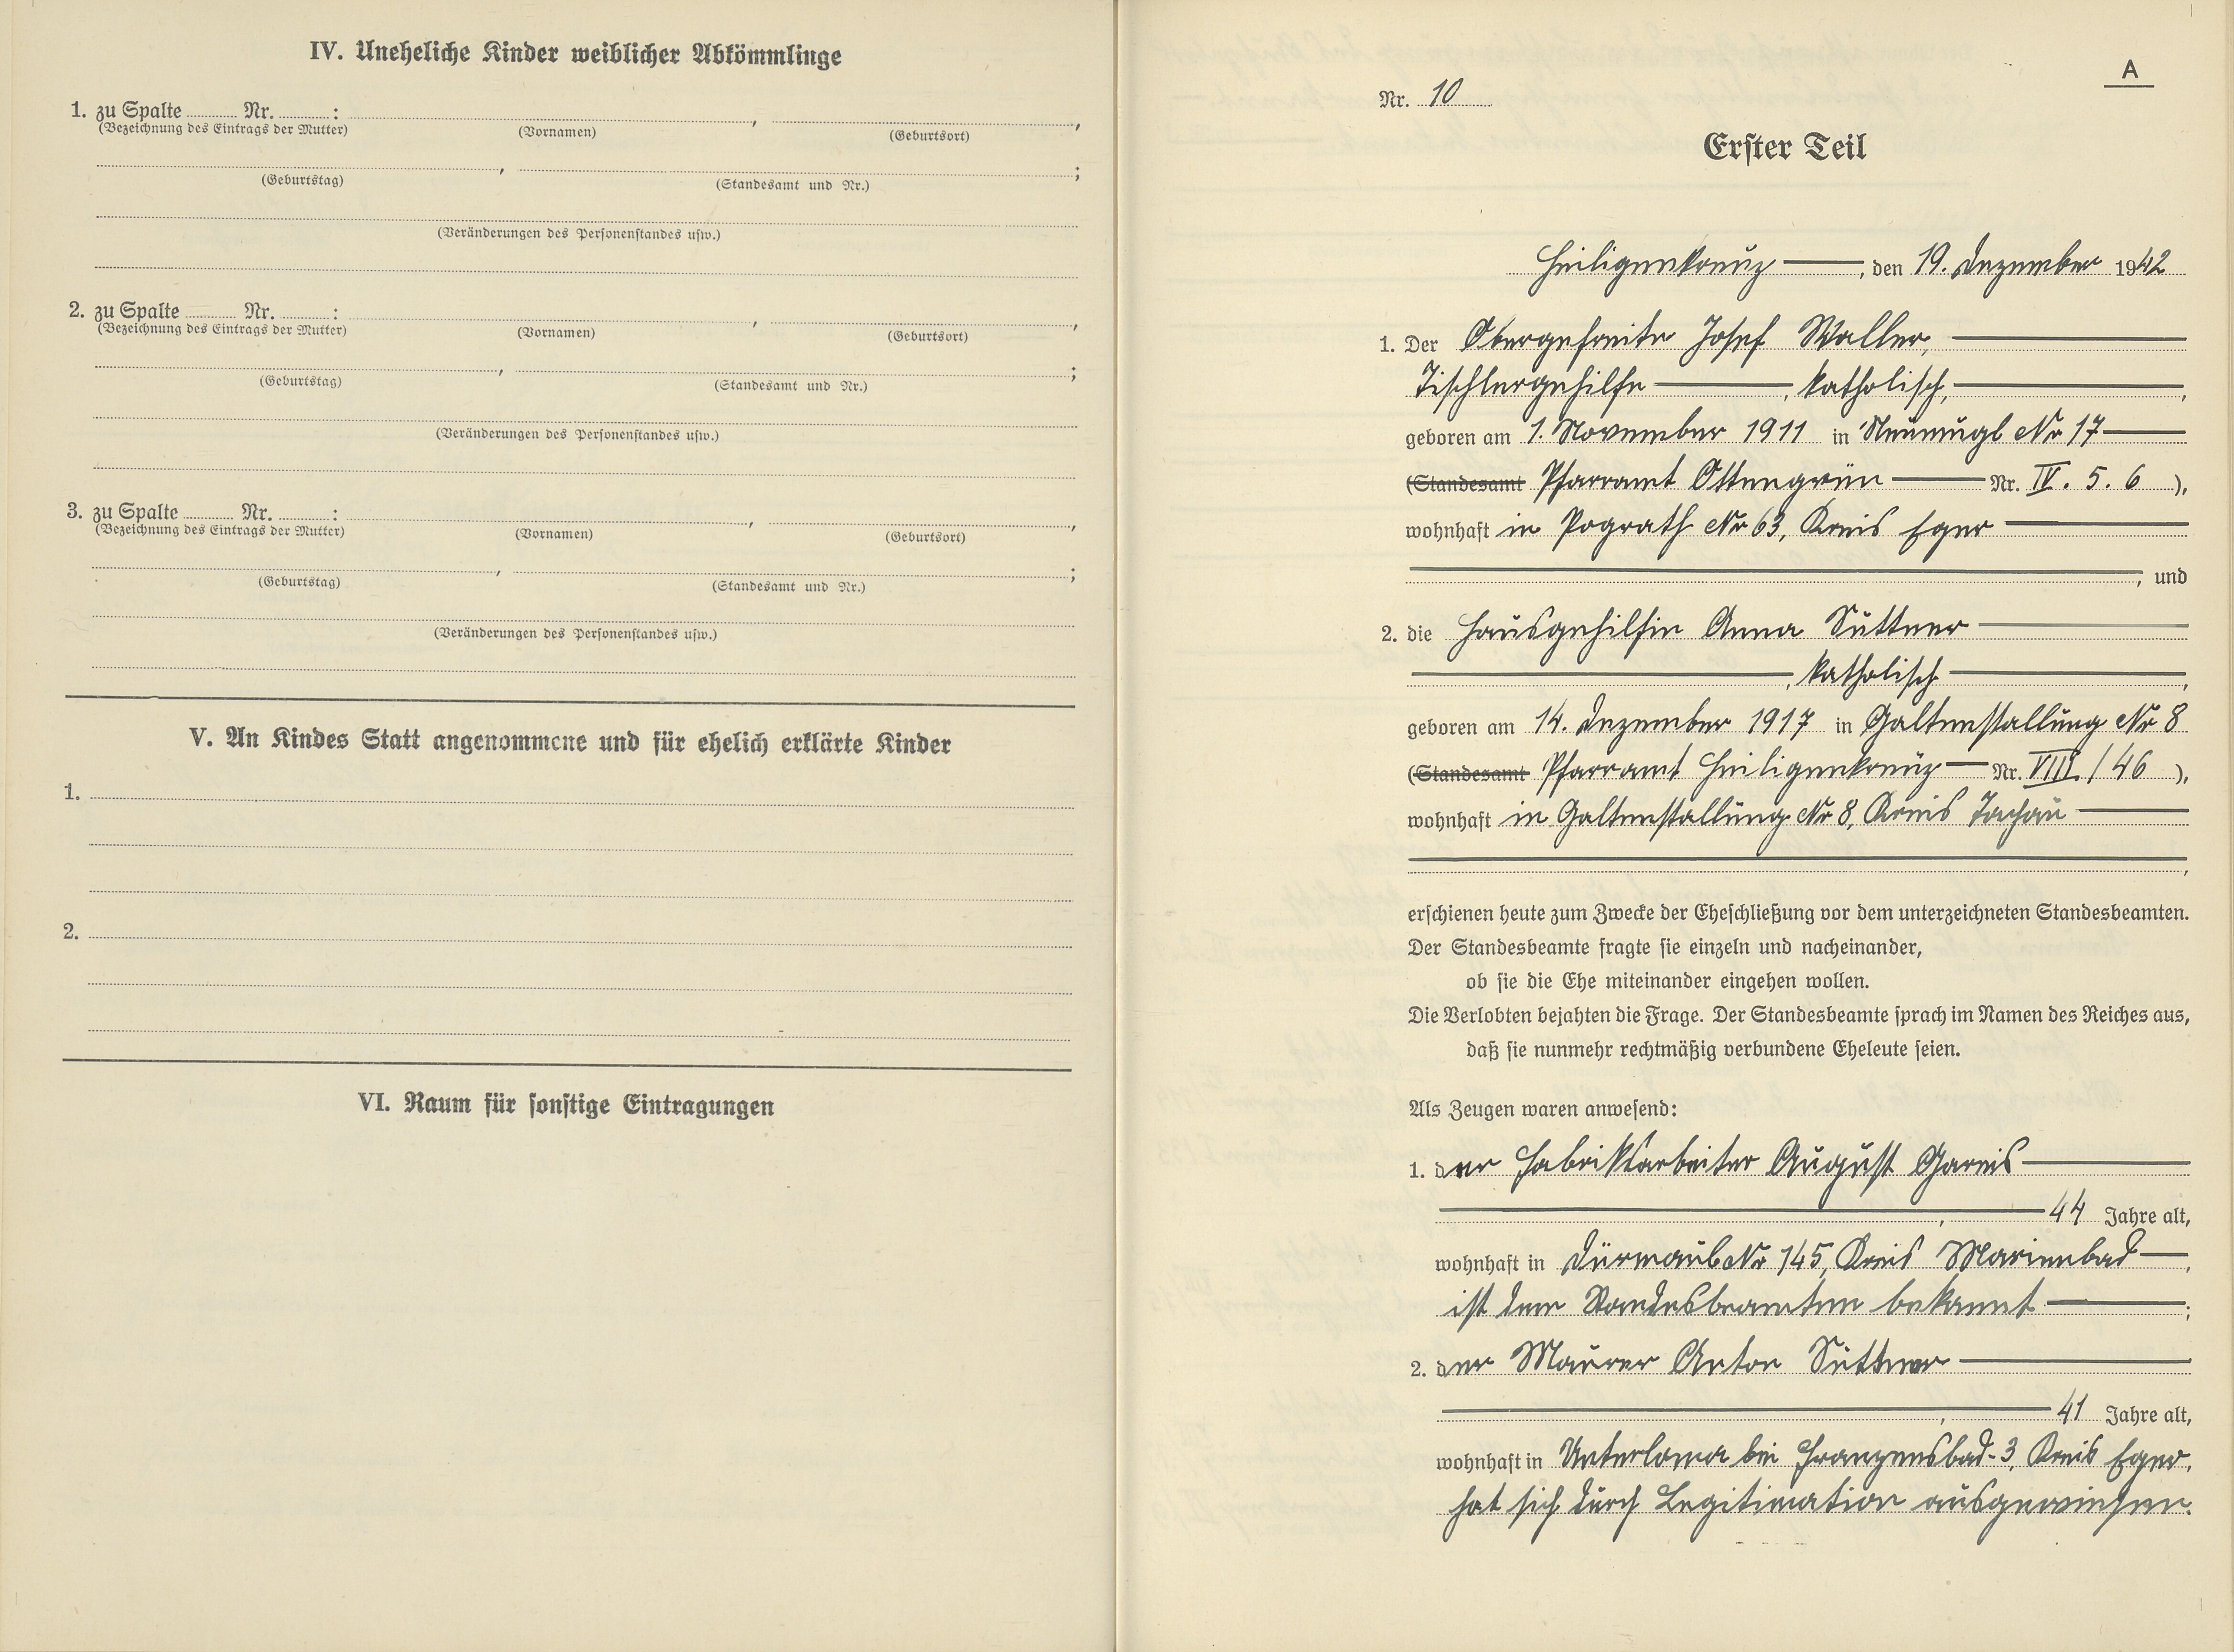 IV. Uneheliche Kinder weiblicher Abkömmlinge
1. zu Spalte ........ Nr. ........ :
(Bezeichnung des Eintrags der Mutter) (Vornamen) , (Geburtsort) ,
(Geburtstag) , (Standesamt und Nr.) ;
(Veränderungen des Personenstandes usw.)
2. zu Spalte ........ Nr. ........ :
(Bezeichnung des Eintrags der Mutter) (Vornamen) , (Geburtsort) ,
(Geburtstag) , (Standesamt und Nr.) ;
(Veränderungen des Personenstandes usw.)
3. zu Spalte ........ Nr. ........ :
(Bezeichnung des Eintrags der Mutter) (Vornamen) , (Geburtsort) ,
(Geburtstag) , (Standesamt und Nr.) ;
(Veränderungen des Personenstandes usw.)
V. An Kindes Statt angenommene und für ehelich erklärte Kinder
1.
2.
VI. Raum für sonstige Eintragungen
A
Nr. 10
Erster Teil
Heiligenkreuz, den 19. Dezember 1942
1. Der Obergefreite Josef Waller,
Tischlergehilfe, katholisch,
geboren am 1. November 1911 in Neumugl Nr 17
(Standesamt Pfarramt Ottengrün Nr. IV. 5. 6 ),
wohnhaft in Pograth Nr 63, Kreis Eger
, und
2. die Hausgehilfin Anna Süttner
, katholisch,
geboren am 14. Dezember 1917 in Galtenstallung Nr 8
(Standesamt Pfarramt Heiligenkreuz Nr. VIII / 46 ),
wohnhaft in Galtenstallung Nr 8, Kreis Tachau
,
erschienen heute zum Zwecke der Eheschließung vor dem unterzeichneten Standesbeamten.
Der Standesbeamte fragte sie einzeln und nacheinander,
ob sie die Ehe miteinander eingehen wollen.
Die Verlobten bejahten die Frage. Der Standesbeamte sprach im Namen des Reiches aus,
daß sie nunmehr rechtmäßig verbundene Eheleute seien.
Als Zeugen waren anwesend:
1. der Fabriksarbeiter August Gareis
, 44 Jahre alt,
wohnhaft in Dürmaul Nr 145, Kreis Marienbad,
ist dem Standesbeamten bekannt;
2. der Maurer Anton Süttner
, 41 Jahre alt,
wohnhaft in Unterloma bei Franzensbad-3, Kreis Eger,
hat sich durch Legitimation ausgewiesen.